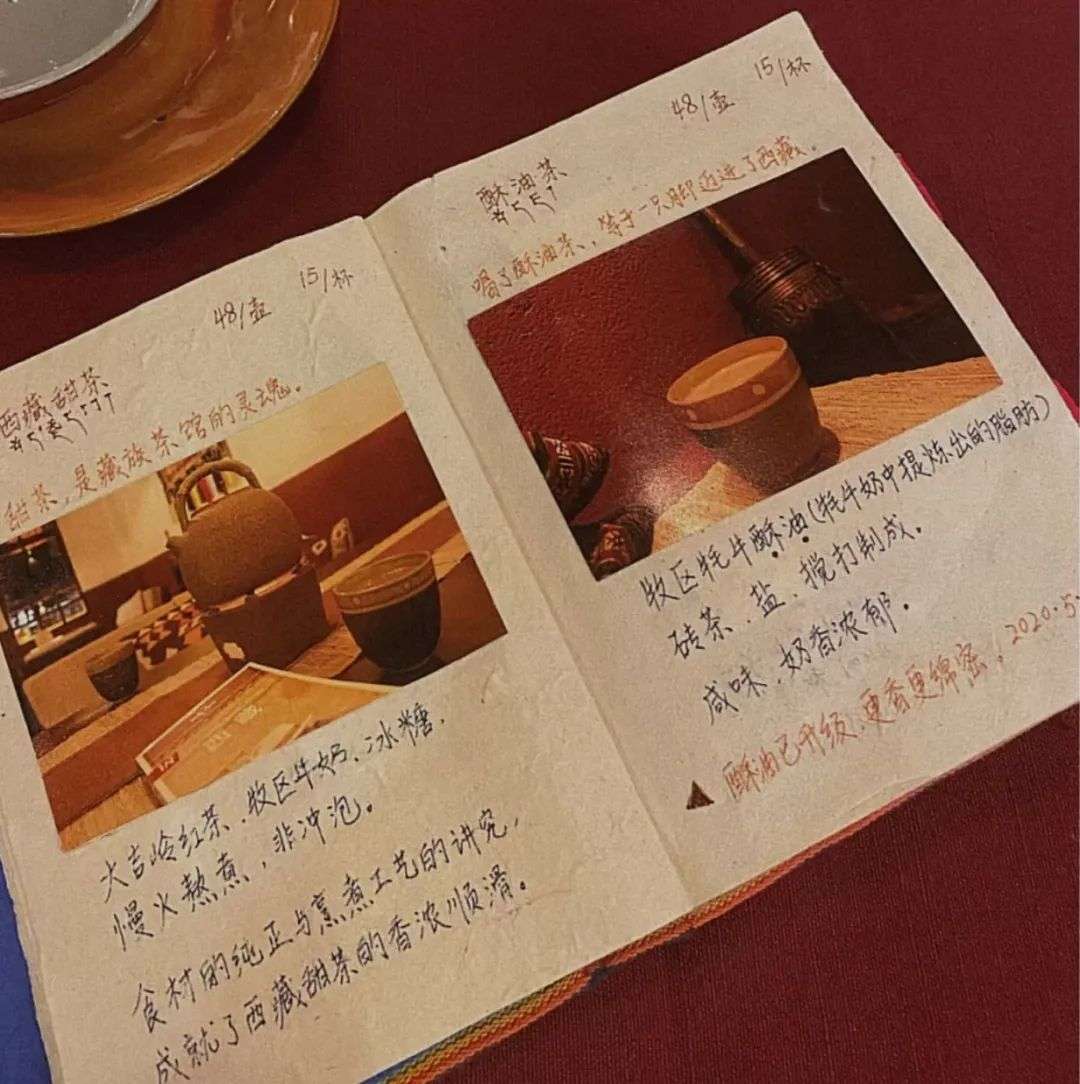 48/壶 15/杯
西藏甜茶
甜茶，是藏族茶馆的灵魂。
大吉岭红茶、牧区牛奶、冰糖，
慢火熬煮，非冲泡。
食材的纯正与烹煮工艺的讲究，
成就了西藏甜茶的香浓顺滑。
48/壶 15/杯
酥油茶
喝了酥油茶，等于一只脚迈进了西藏。
牧区牦牛酥油(牦牛奶中提炼出的脂肪)
砖茶、盐、搅打制成。
咸味，奶香浓郁。
▲酥油已升级，更香更绵密，2020.5.